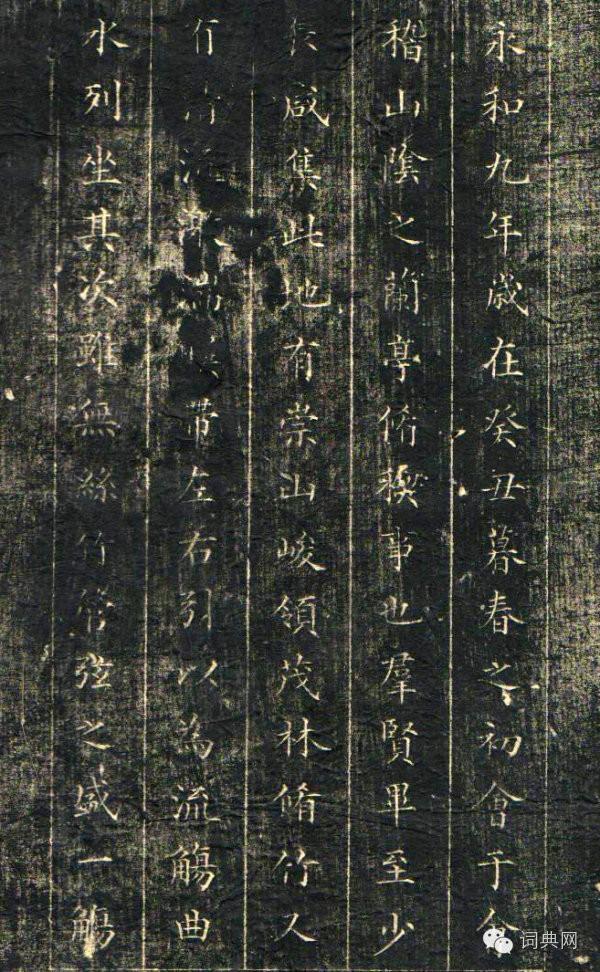 永和九年歲在癸丑暮春之初會于會
稽山陰之蘭亭脩禊事也羣賢畢至少
長咸集此地有崇山峻領茂林脩竹又
有清流激湍暎帶左右引以為流觴曲
水列坐其次雖無絲竹管弦之盛一觴
词典网